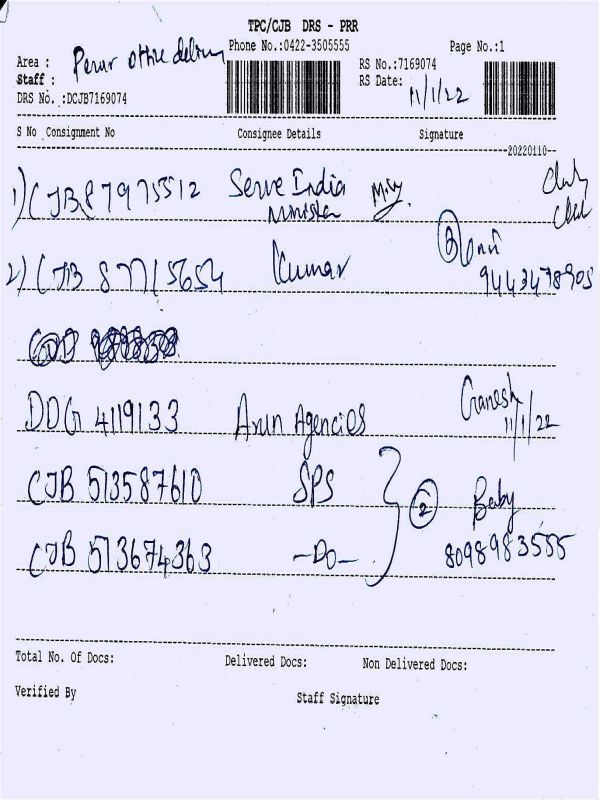 TPC/CJB DRS - PRR
Phone No.:0422-3505555 Page No.:1
Area : Perur office delivery
Staff :
RS No.:7169074
RS Date: 11/1/22
DRS No. :DCJB7169074
S No Consignment No Consignee Details Signature
20220110
1) CJB87975512 Serve India
2) CJB 87715654 Kumar 9443478905
DDG 4119133 Arun Agencies Ganesh 11/1/22
CJB 513587610 SPS 2 Baby
CJB 513674363 -Do- 8098983555
Total No. Of Docs: Delivered Docs: Non Delivered Docs:
Verified By Staff Signature